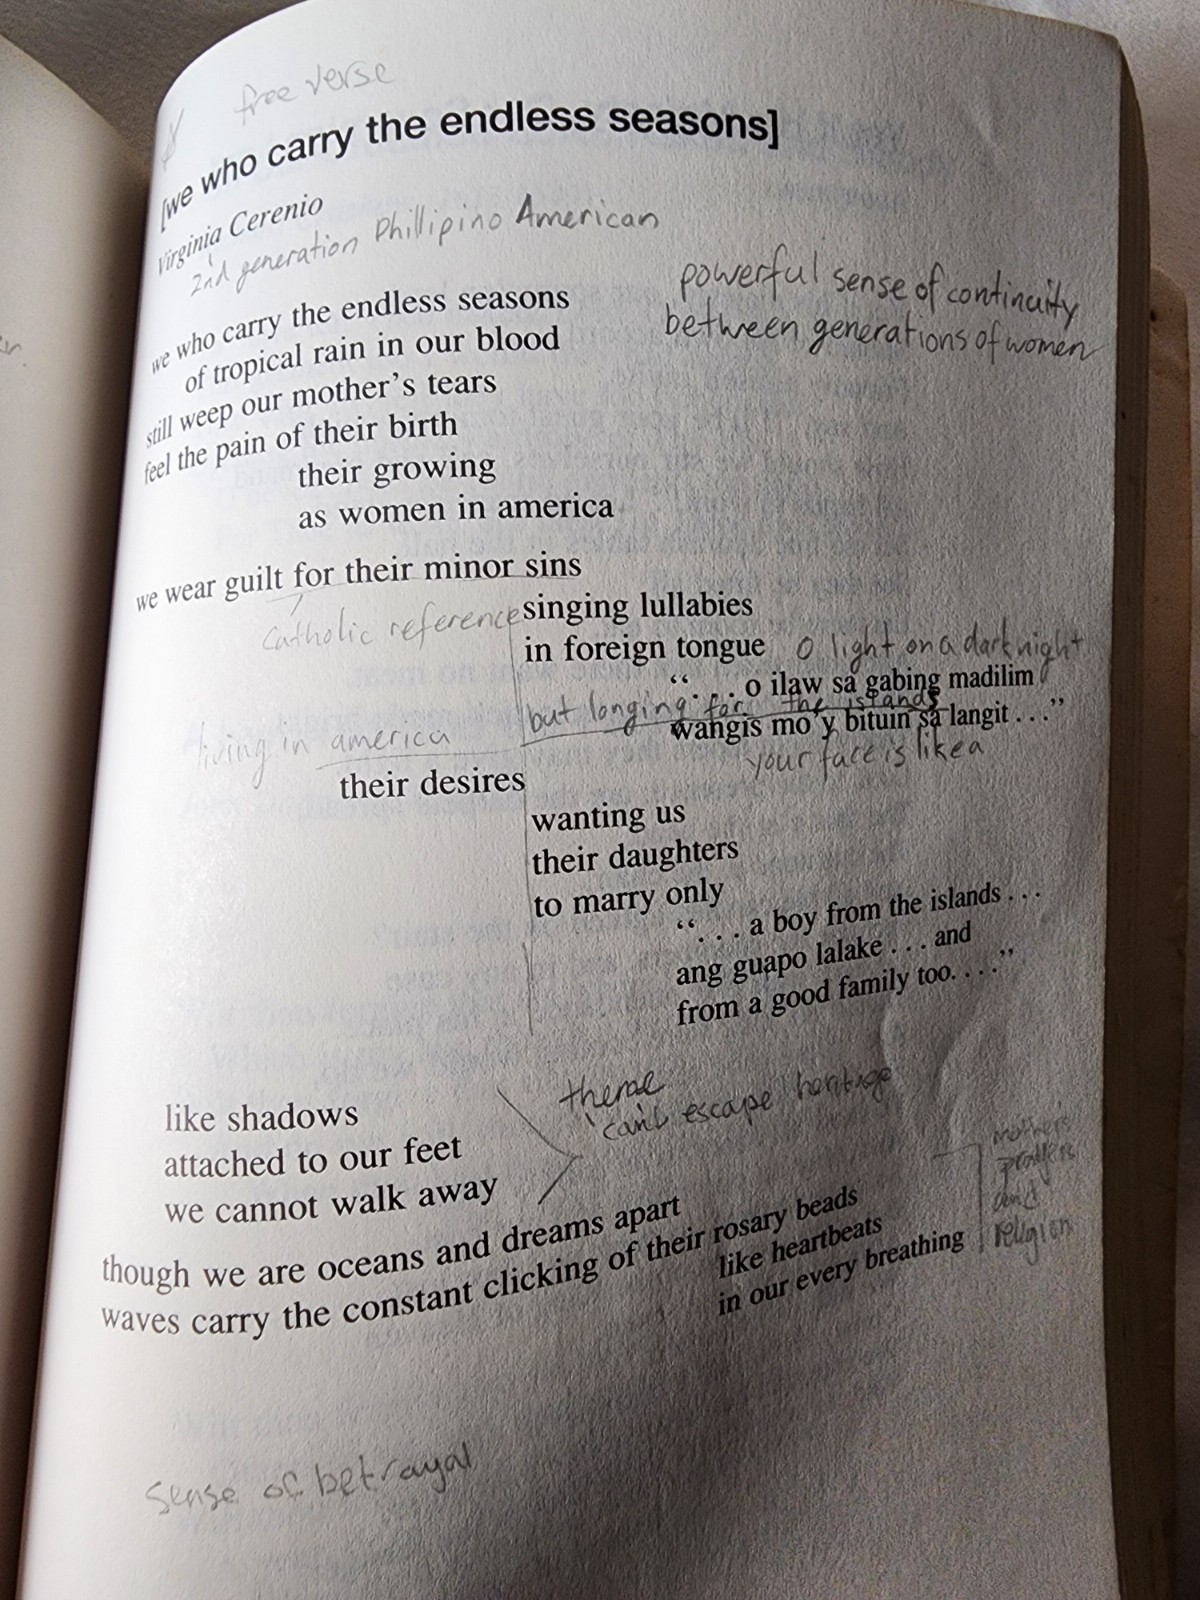 free verse
[we who carry the endless seasons]
Virginia Cerenio
2nd generation Phillipino American
powerful sense of continuity
between generations of women
we who carry the endless seasons
of tropical rain in our blood
still weep our mother's tears
feel the pain of their birth
their growing
as women in america
we wear guilt for their minor sins
Catholic reference
singing lullabies
in foreign tongue
O light on a dark night
“. . . o ilaw sa gabing madilim
but longing for the islands
wangis mo'y bituin sa langit . . .”
living in america
your face is like a
their desires
wanting us
their daughters
to marry only
“. . . a boy from the islands . . .
ang guapo lalake . . . and
from a good family too. . . .”
theme
can't escape heritage
like shadows
attached to our feet
we cannot walk away
mothers
and
religion
though we are oceans and dreams apart
waves carry the constant clicking of their rosary beads
like heartbeats
in our every breathing
sense of betrayal